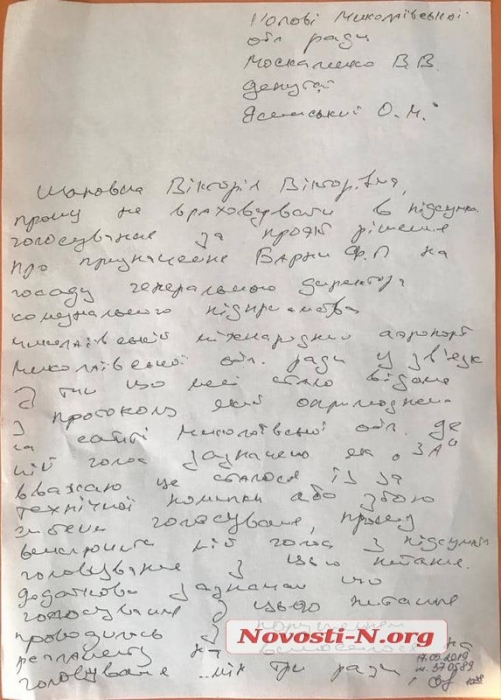 Голові Миколаївської
обл ради
Москаленко В.В.
депутат
Ясинський О.М.
Шановна Вікторія Вікторівна,
прошу не враховувати в підсумках
голосування за проєкт рішення
про призначення Варни Ф.П на
посаду генерального директора
комунального підприємства
миколаївський міжнародний аеропорт
Миколаївської обл. ради у зв'язку
з тим що мені стало відомо
з протокола який оприлюднено
на сайті миколаївської обл. де
мій голос зазначено як "ЗА"
вважаю це сталося із за
технічної помилки або збою
системи голосування, прошу
виключити мій голос з підсумків
голосування з цього питання.
додатково зазначаю що
голосування з цього питання
проводилось з порушенням
регламенту
Novosti-N.org
на
голосування три рази,
17.09.2019